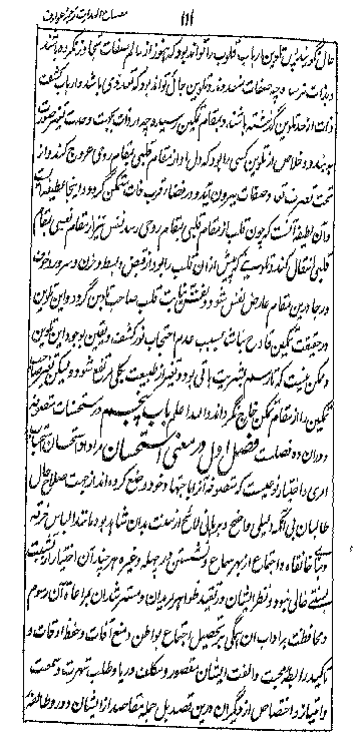 ۱۱۱
حال گویند پس تلوین ارباب قلوب را تواند بود که هنوز از عالم صفات تجاوز نکرده باشند
و ذات نرسد و چه صفات متعدده و تلوین جائی تواند بود که تعددی باشد و ارباب کشف
ذات از حد تلوین گذشته باشند و بمقام تمکین رسیده چه در ذات بجهت وحدت تغیر صورت
نبندد و خلاص از تلوین کسی را بود که دل او از مقام قلبی بمقام روحی عروج کند و از
تحت تصرف تعدد صفات بیرون آید و در فضاء قرب ذات متمکن گردد و اینجا لطیفه ایست
و آن لطیفه آنست که چون قلب از مقام قلبی بمقام روحی رسد نفس نیز از مقام نفسی بمقام
قلبی انتقال کند و تلوینی که پیش ازان قلب را بود از قبض و بسط و حزن و سرور و خوف
و رجا درین مقام عارض نفس شود و نفس نایب قلب صاحب تلوین گردد و این تلوین
در حقیقت تمکین قادح نباشد بسبب عدم احتجاب نور کشف و یقین بوجود این تلوین
و ممکن نیست که تا رسم بشریت باقی بود و تغیر از طبیعت بکلی مرتفع شود ولیکن تغیر صاحب
تمکین را از مقام تمکین خارج نگرداند والله اعلم باب پنجم در مستحسنات متصوفه
و دران ده فصلست فصل اول در معنی استحسان مراد از استحسان استحباب
امری و اختیار نوعیست که متصوفه آنرا باجتهاد خود وضع کرده اند از جهت صلاح حال
طالبان بی آنکه دلیلی واضح و برهانی لائح از سنت بدان شاهد بود مانند الباس خرقه
و بنای خانقاه و اجتماع از بهر سماع و نشستن در چله و غیره هرچند آن اختیار از تشبث
بسنتی خالی نبود و نظر ایشان در تقیید ظواهر مریدان و مسترشدان بمراعاة آن رسوم
و محافظت بر آداب آن همگی بر تحصیل اجتماع بواطن و منع آفات و حفظ اوقات و
تاکید رابطه محبت و الفت ایشان مقصور و سکان و ریا و طلب شهرت و سمعت
و امتیاز و اختصاص از دیگران درین تصدیل جمله مقاصد از ایشان دور و طائفه